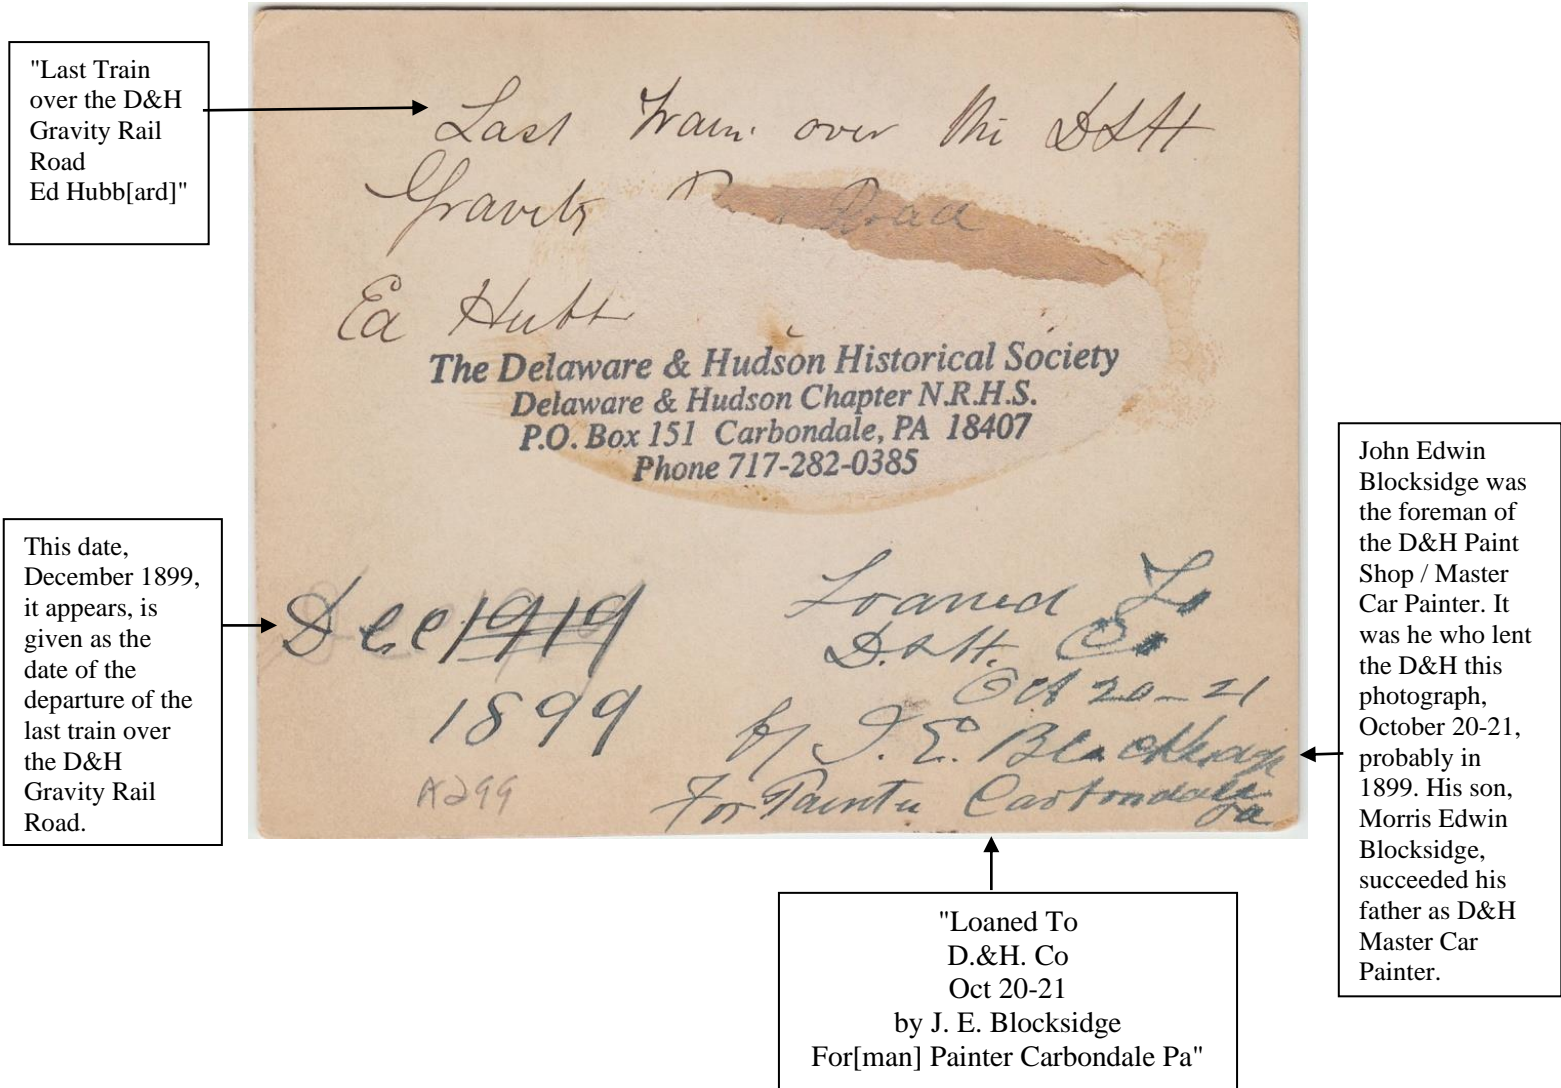 "Last Train
over the D&H
Gravity Rail
Road
Ed Hubb[ard]"
Last Train over the D&H
Gravity Road
Ed Hubb
The Delaware & Hudson Historical Society
Delaware & Hudson Chapter N.R.H.S.
P.O. Box 151 Carbondale, PA 18407
Phone 717-282-0385
This date,
December 1899,
it appears, is
given as the
date of the
departure of the
last train over
the D&H
Gravity Rail
Road.
Dec 1919
1899
A299
Loaned To
D.&H. Co
Oct 20-21
by J. E. Blocksidge
For Painter Carbondale Pa
John Edwin
Blocksidge was
the foreman of
the D&H Paint
Shop / Master
Car Painter. It
was he who lent
the D&H this
photograph,
October 20-21,
probably in
1899. His son,
Morris Edwin
Blocksidge,
succeeded his
father as D&H
Master Car
Painter.
"Loaned To
D.&H. Co
Oct 20-21
by J. E. Blocksidge
For[man] Painter Carbondale Pa"